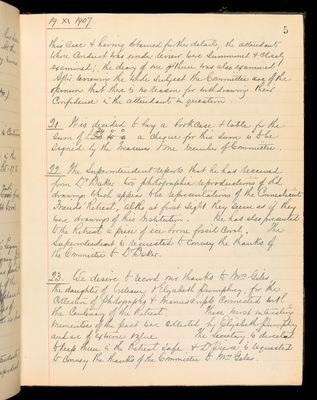 19 XI 1907
5
this case & having obtained further details, the attendants
whose conduct was under review were summoned & closely
examined; the diary of one of them was also examined.
After reviewing the whole subject the Committee are of the
opinion that there is no reason for withdrawing their
Confidence in the attendants in question.
21. It was decided to buy a Bookcase & table for the
Sum of a cheque for this sum to be
signed by the Treasurer & one member of Committee.
22. The Superintendent reports that he has received
from Dr Baker two photographic reproductions of old
drawings which appear to be representations of the
Friends' Retreat, altho at first sight they seem as if they
were drawings of this Institution. He has also presented
to the Retreat a piece of ice borne fossil Coral. The
Superintendent is requested to convey the thanks of
the Committee to Dr Baker.
23. We desire to record our thanks to Mrs Giles,
the daughter of & Elizabeth Pumphrey, for the
Collection of Photographs & Manuscripts Connected with
the Centenary of the Retreat. These most interesting
mementoes of the past were collected by Elizabeth Pumphrey
and are of extreme value. The Secretary is directed
to keep them in the Retreat Safe & Dr Pierce is requested
to convey the thanks of the Committee to Mrs Giles.